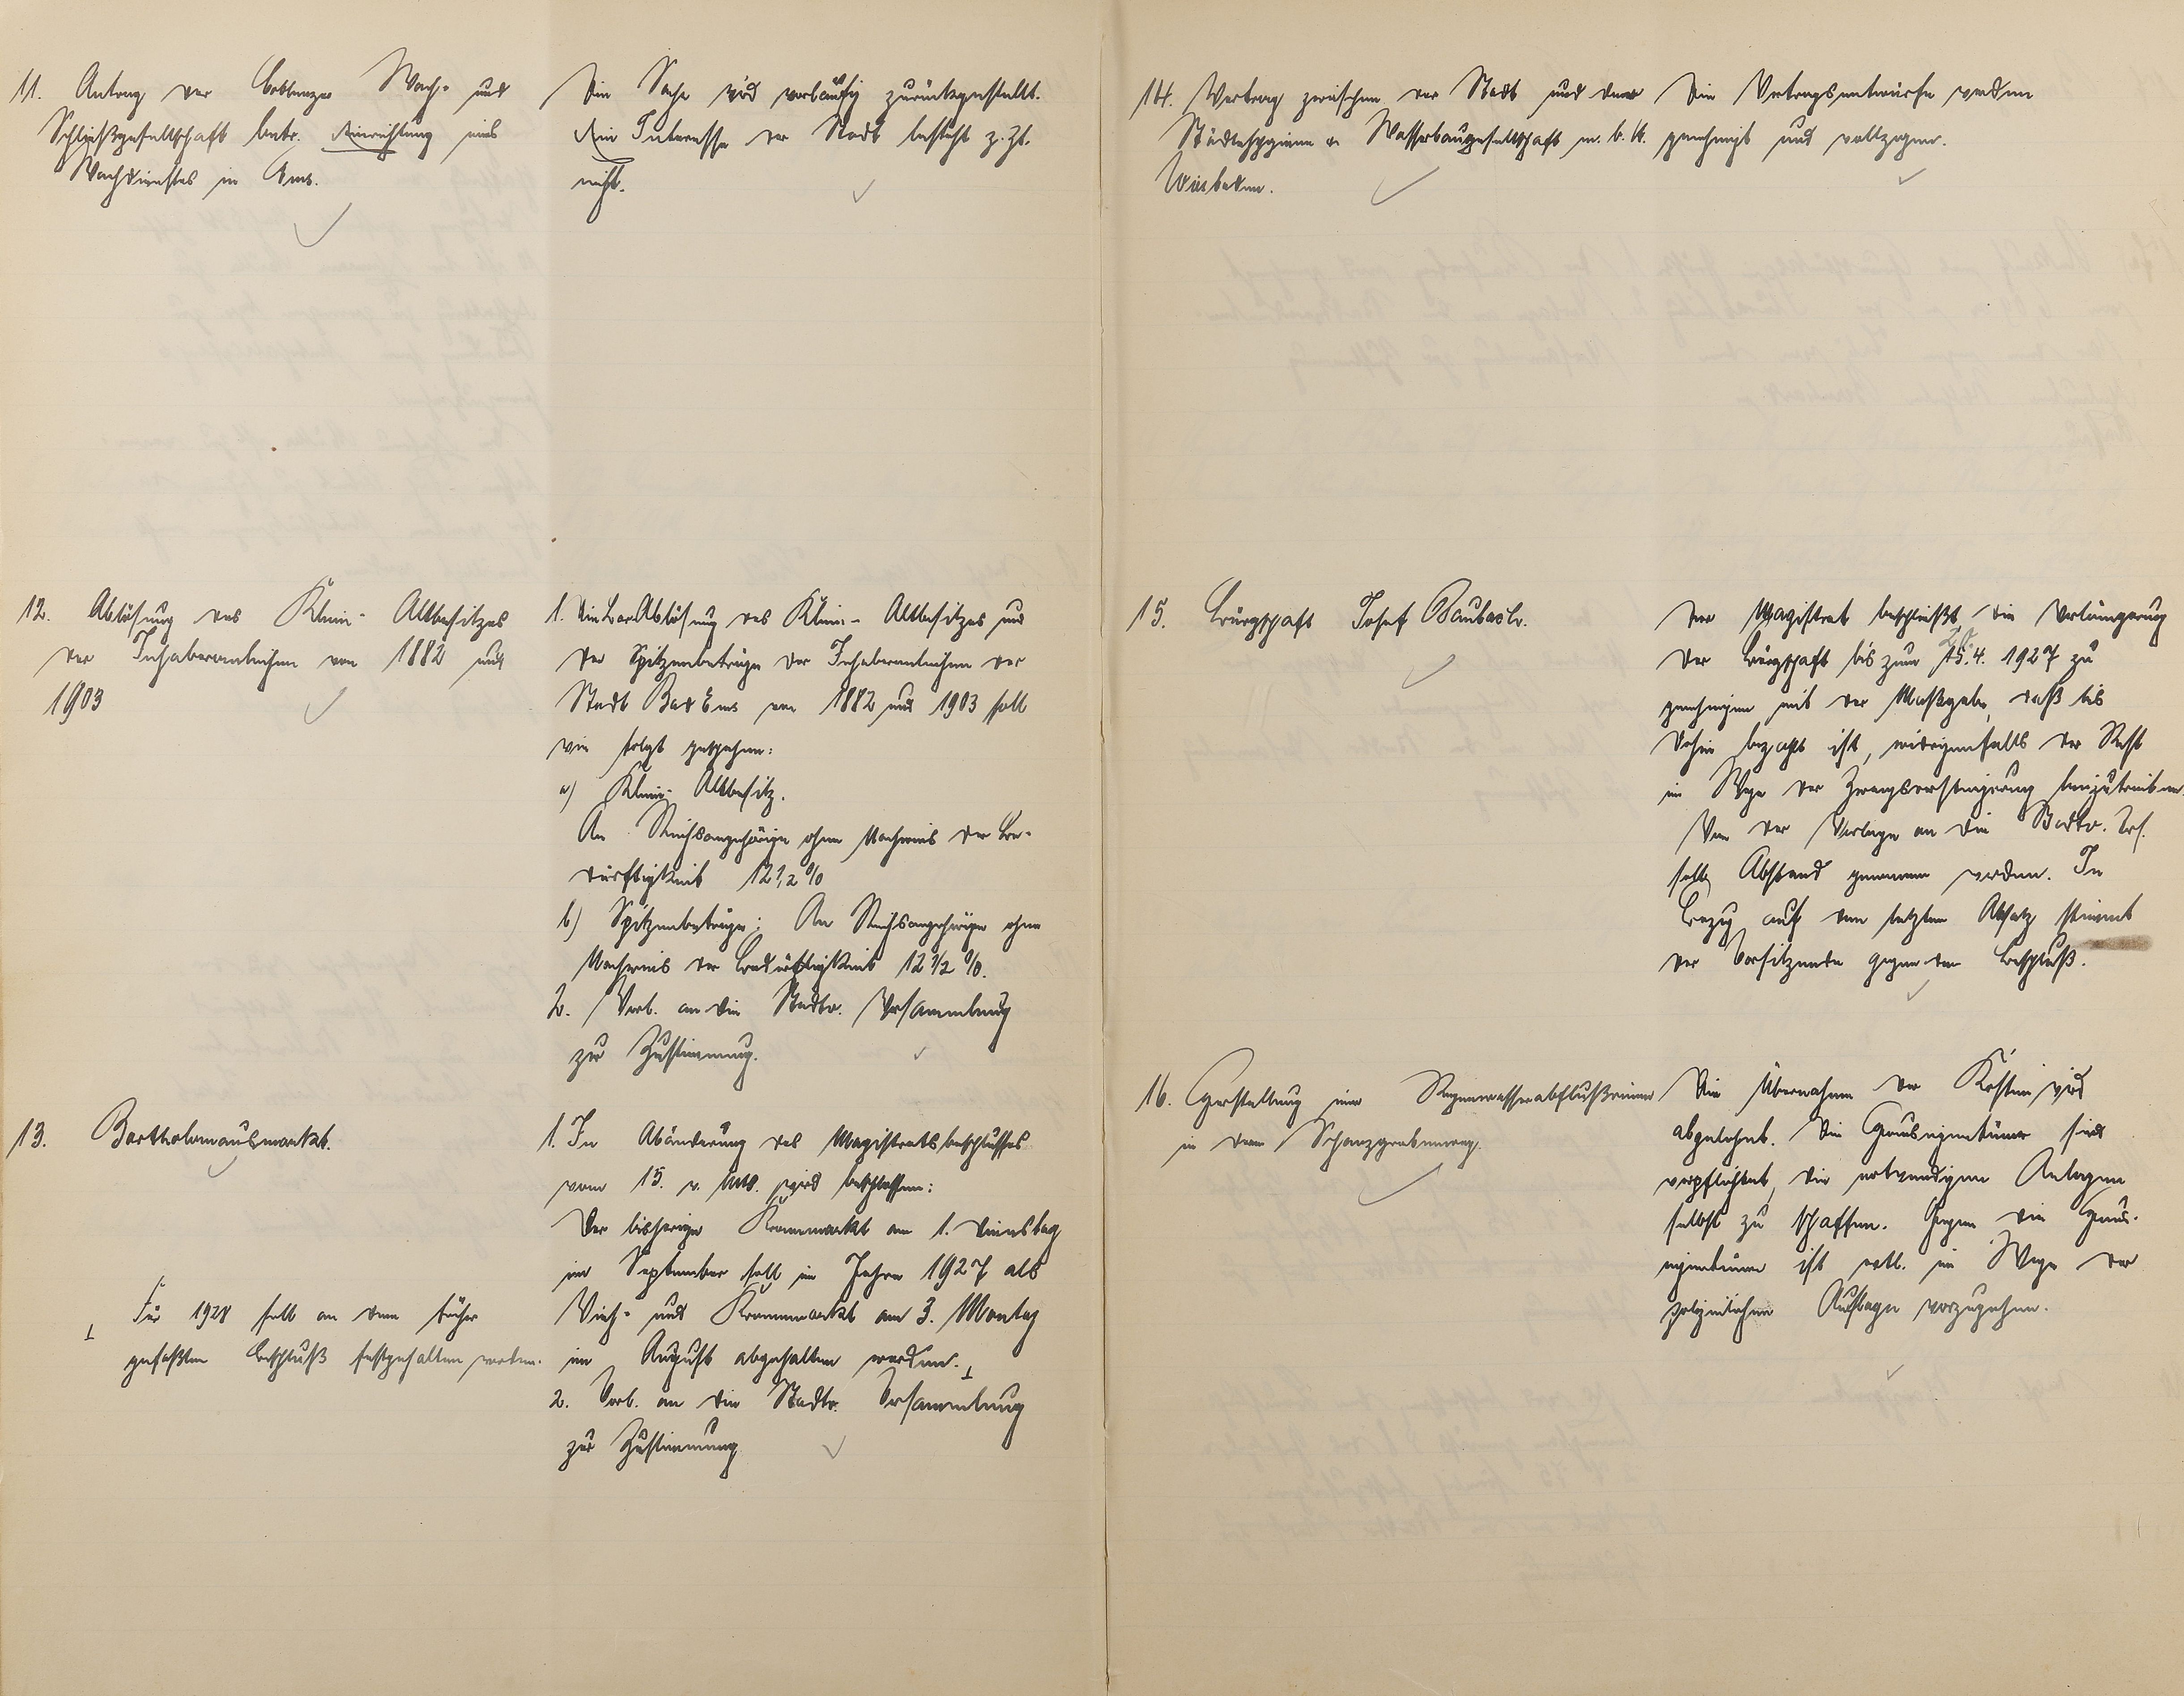 11. Antrag der Coblenzer Wach- und
Schließgesellschaft betr. Einrichtung eines
Wachdienstes in Ems.
Die Sache wird vorläufig zurückgestellt.
Ein Interesse der Stadt besteht z. Zt.
nicht.
12. Ablösung des Klein- Altbesitzes
der Inhaberanleihen von 1882 und
1903
1. Die Bar Ablösung des Klein- Altbesitzes und
der Spitzenbeträge der Inhaberanleihen der
Stadt Bad Ems von 1882 und 1903 soll
wie folgt geschehen:
a) Klein- Altbesitz.
An Reichsangehörige ohne Nachweis der Be-
dürftigkeit 12 1/2 %
b) Spitzenbeträge: An Reichsangehörige ohne
Nachweis der Bedürftigkeit 12 1/2 %.
2. Vorl. an die Stadtv. Versammlung
zur Zustimmung.
13. Bartholomäusmarkt.
1. In Abänderung des Magistratsbeschlusses
vom 15. v. Mts. wird beschlossen:
Der bisherige Krammarkt am 1. Dienstag
im September soll im Jahre 1927 als
Vieh- und Krammarkt am 3. Montag
im August abgehalten werden. ⊥
2. Vorl. an die Stadtv. Versammlung
zur Zustimmung
⊥ Für 1928 soll an dem früher
gefaßten Beschluß festgehalten werden.
14. Vertrag zwischen der Stadt und der
Städtehygiene u. Wasserbaugesellschaft m. b. H.
Wiesbaden.
Die Vertragsentwürfe werden
genehmigt und vollzogen.
15. Bürgschaft Josef Baubach.
Der Magistrat beschließt, die Verlängerung
der Bürgschaft bis zum 15. 4. 1927 zu
genehmigen mit der Maßgabe, daß bis
dahin bezahlt ist, widrigenfalls der Rest
im Wege der Zwangsversteigerung beizutreiben.
Von der Vorlage an die Stadtv. Vers.
soll Abstand genommen werden. In
Bezug auf den letzten Absatz stimmt
der Vorsitzende gegen den Beschluß.
16. Herstellung einer Regenwasserabflußrinne
in dem Schanzgrabenweg.
Die Übernahme der Kosten wird
abgelehnt. Die Hauseigentümer sind
verpflichtet, die notwendigen Anlagen
selbst zu schaffen. Gegen die Haus-
eigentümer ist evtl. im Wege der
polizeilichen Auflage vorzugehen.